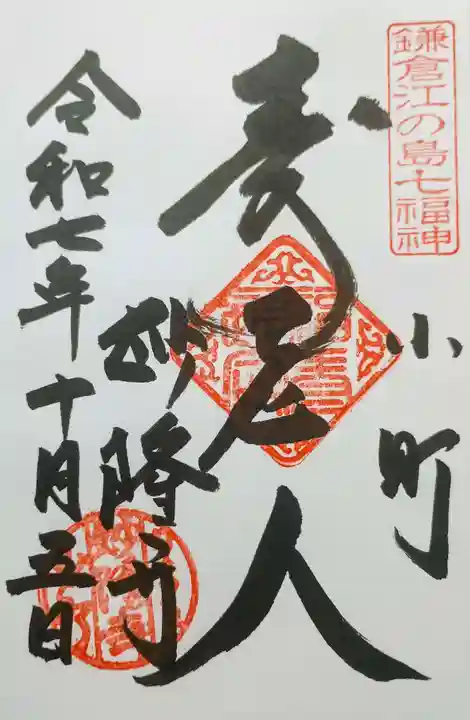 鎌倉江の島七福神
小町
寿老人
妙隆寺
令和七年十月五日